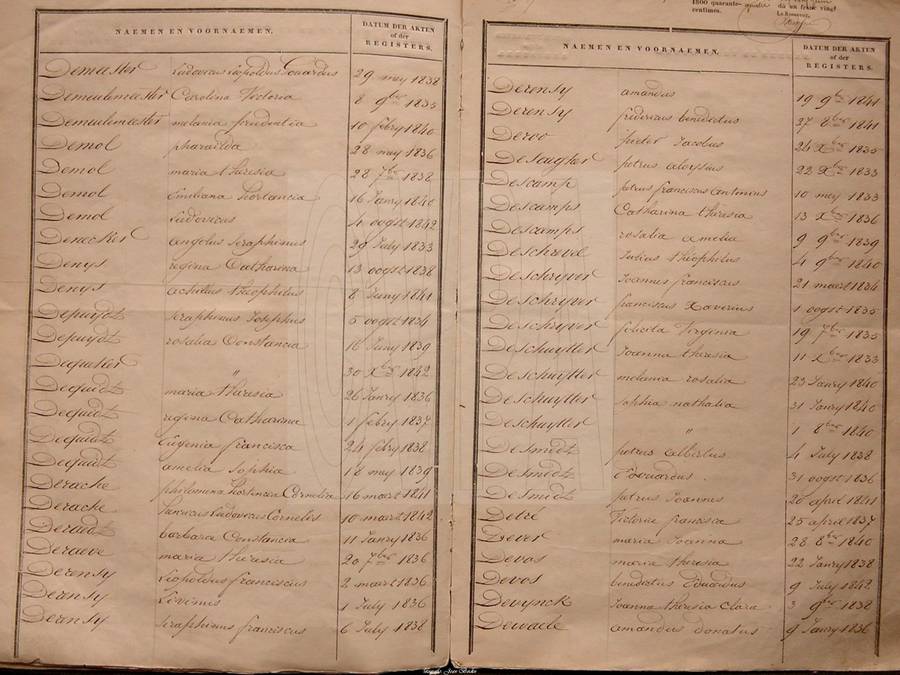 NAEMEN EN VOORNAEMEN. DATUM DER AKTEN of der REGISTERS.
Demeester Ludovicus Leopoldus Eduardus 29 mey 1838
Demeulemeester Carolina Victoria 8 9ber 1835
Demeulemeester melania prudentia 10 febry 1840
Demol pharaïlda 28 mey 1836
Demol maria theresia 28 7ber 1838
Demol Emiliana hortancia 16 Janry 1840
Demol Ludovicus 4 oogst 1842
Denecker angelus Seraphinus 29 July 1833
Denys regina Catharina 13 oogst 1838
Denys achilius théophilus 8 Juny 1841
Depuydt Seraphinus Josephus 5 oogst 1834
Depuydt rosalia Constancia 16 Juny 1839
Dequeker " 30 Xber 1842
Dequidt maria theresia 26 Janry 1836
Dequidt regina Catharina 1 febry 1837
Dequidt Eugenia francisca 24 febry 1838
Dequidt amelia Sophia 18 mey 1839
Derache philomena hortencia Cornelia 16 maert 1841
Derache Ludovicus Cornelis 10 maert 1842
Deraedt barbara Constancia 11 Janry 1836
Deraeve maria theresia 20 7ber 1836
Derensy Leopoldus franciscus 2 maert 1836
Derensy Livinus 1 July 1836
Derensy Seraphinus franciscus 6 July 1838
1800 quarante-
centimes.
Le Receveur,
NAEMEN EN VOORNAEMEN. DATUM DER AKTEN of der REGISTERS.
Derensy amandus 19 9ber 1841
Derensy fridericus benedictus 27 8ber 1841
Deroo pieter Jacobus 24 Xber 1835
Desaegher petrus aloysius 22 Xber 1833
Descamp petrus franciscus antonius 10 mey 1833
Descamps Catharina theresia 13 Xber 1836
Descamps rosalia amelia 9 9ber 1839
Deschrevel Julius théophilus 4 9ber 1840
Deschryver Joannes franciscus 21 maert 1834
Deschryver franciscus Xaverius 1 oogst 1835
Deschryver felicita Virginia 19 7ber 1835
Deschuytter Joanna theresia 11 Xber 1833
Deschuytter melania rosalia 23 Janry 1840
Deschuytter Sophia nathalia 31 Janry 1840
Deschuytter " 1 8ber 1840
Desmidt petrus albertus 4 July 1838
Desmidt Edouardus 31 oogst 1836
Desmidt petrus Joannes 20 april 1841
Detré Victorine francisca 25 april 1837
Dever maria Joanna 28 8ber 1840
Devos maria theresia 22 Janry 1838
Devos benedictus Eduardus 9 July 1842
Devynck Joanna theresia Clara 3 9ber 1838
Dewaele amandus donatus 9 Janry 1836